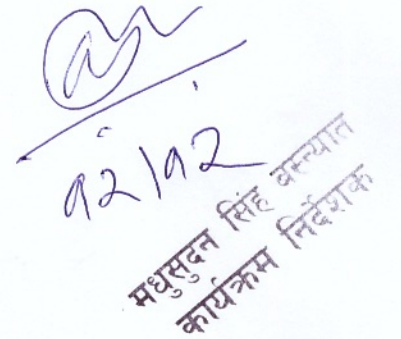 १२/१२
मधुसुदन सिंह बस्न्यात
कार्यक्रम निर्देशक